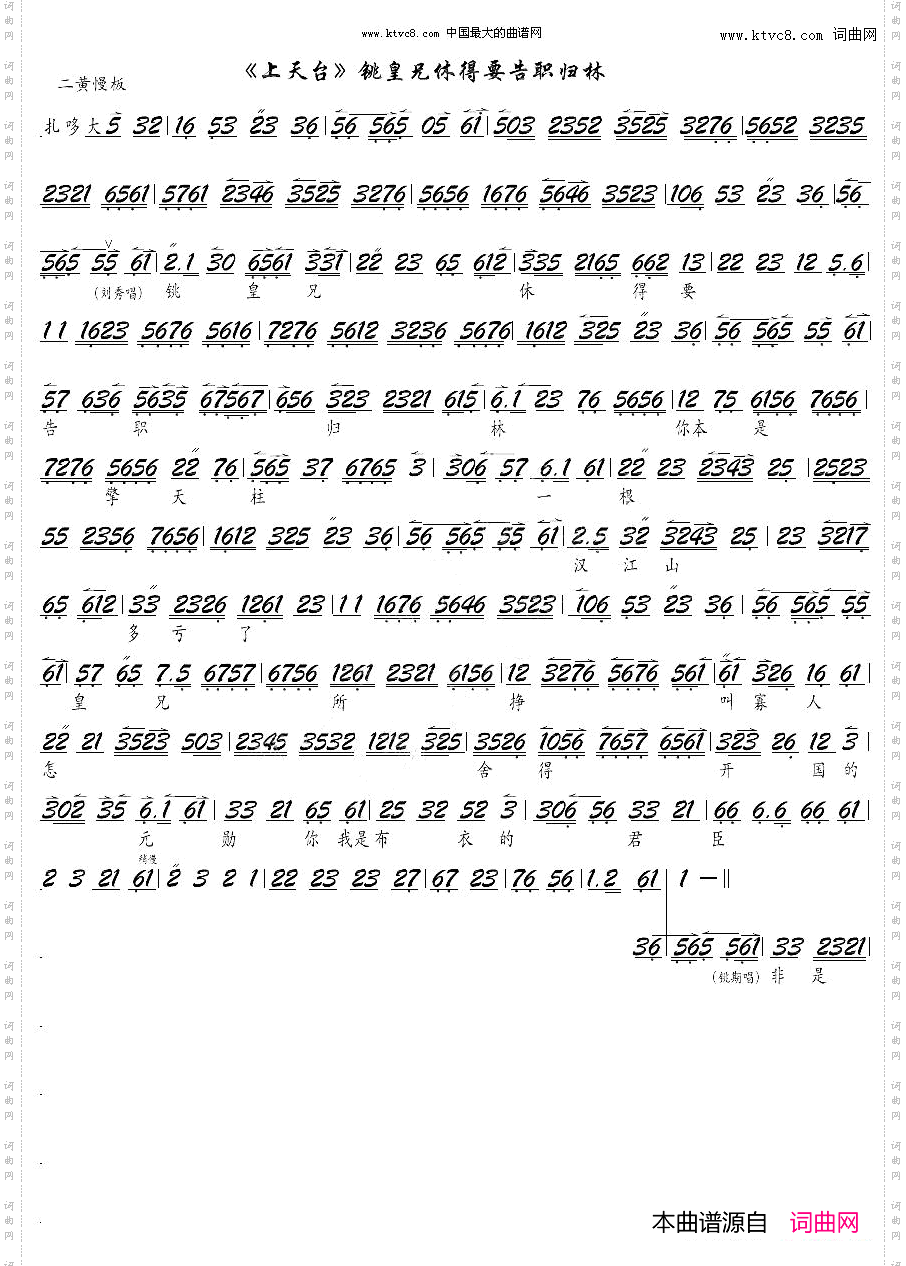 www.ktvc8.com 中国最大的曲谱网
www.ktvc8.com 词曲网
《上天台》铫皇兄休得要告职归林
二黄慢板
扎哆大 5 32 | 16 53 23 36 | 56 565 05 61 | 503 2352 3525 3276 | 5652 3235
2321 6561 | 5761 2346 3525 3276 | 5656 1676 5646 3523 | 106 53 23 36 | 56
565 55 61 | 2.1 30 6561 331 | 22 23 65 612 | 335 2165 662 13 | 22 23 12 5.6 |
(刘秀唱) 铫 皇 兄 休 得 要
11 1623 5676 5616 | 7276 5612 3236 5676 | 1612 325 23 36 | 56 565 55 61 |
57 636 5635 67567 | 656 323 2321 615 | 6.1 23 76 5656 | 12 75 6156 7656 |
告 职 归 林 你本 是
7276 5656 22 76 | 565 37 6765 3 | 306 57 6.1 61 | 22 23 2343 25 | 2523
擎 天 柱 一 根
55 2356 7656 | 1612 325 23 36 | 56 565 55 61 | 2.5 32 3243 25 | 23 3217
汉 江 山
65 612 | 33 2326 1261 23 | 11 1676 5646 3523 | 106 53 23 36 | 56 565 55
多 亏 了
61 | 57 65 7.5 6757 | 6756 1261 2321 6156 | 12 3276 5676 561 | 61 326 16 61
皇 兄 所 挣 叫 寡 人
22 21 3523 503 | 2345 3532 1212 325 | 3526 1056 7657 6561 | 323 26 12 3 |
怎 舍 得 开 国 的
302 35 6.1 61 | 33 21 65 61 | 25 32 52 3 | 306 56 33 21 | 66 6.6 66 61 |
元 勋 你 我是 布 衣 的 君 臣
稍慢
2 3 21 61 | 2 3 2 1 | 22 23 23 27 | 67 23 | 76 56 | 1.2 61 | 1 — ‖
36 | 565 561 | 33 2321 |
(铫期唱) 非 是
本曲谱源自 词曲网